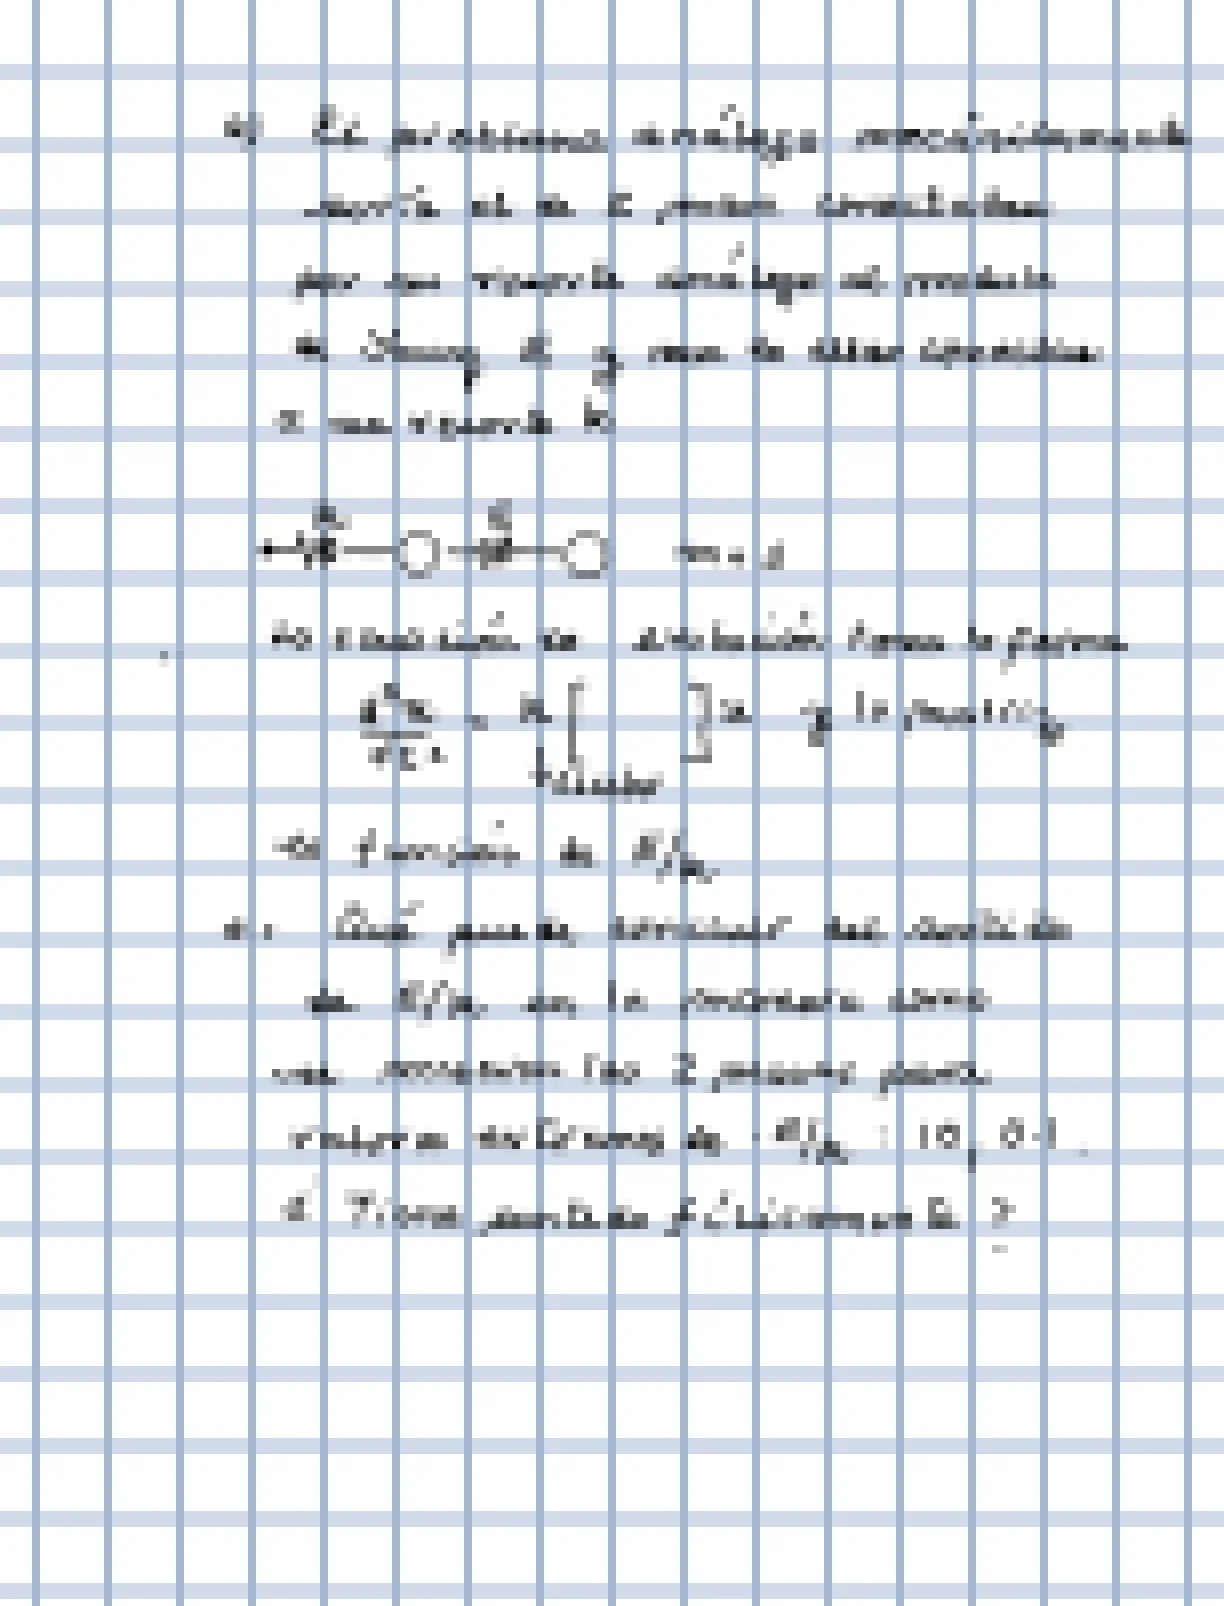 El problema análogo mecánicamente
sería el de 2 masas conectadas
por un resorte análogo al modulo
de Young E y una de ellas conectada
a un resorte k
k E
m = 1
la ecuación de evolución tiene la forma
d²x/dt² = k [ ] x y la matriz
escalar
es función de E/k
Qué puede concluir del sentido
de E/k en la manera como
se mueven las 2 masas para
valores extremos de E/k : 10, 0.1.
¿ Tiene sentido físicamente ?